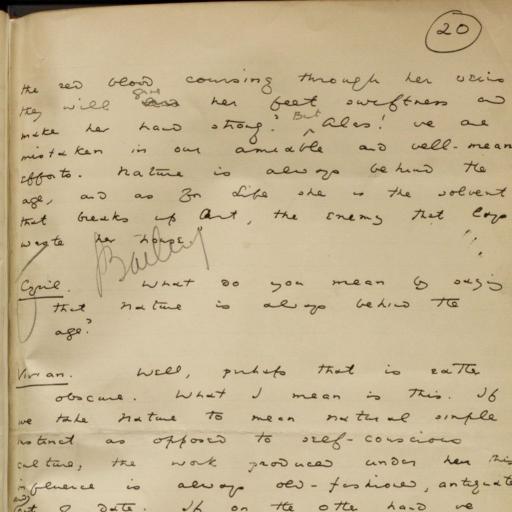 20
the red blood coursing through her veins
they will give her feet swiftness and
make her hand strong? But Alas! we are
mistaken in our amiable and well-mean
efforts. Nature is always behind the
age, and as for Life she is the solvent
that breaks up Art, the enemy that lays
waste her house."
Bailey
Cyril. What do you mean by saying
that Nature is always behind the
age?
Vivian. Well, perhaps that is rather
obscure. What I mean is this. If
we take Nature to mean natural simple
instinct as opposed to self-conscious
culture, the work produced under her this
influence is always old-fashioned, antiquate
and out of date. If on the other hand we